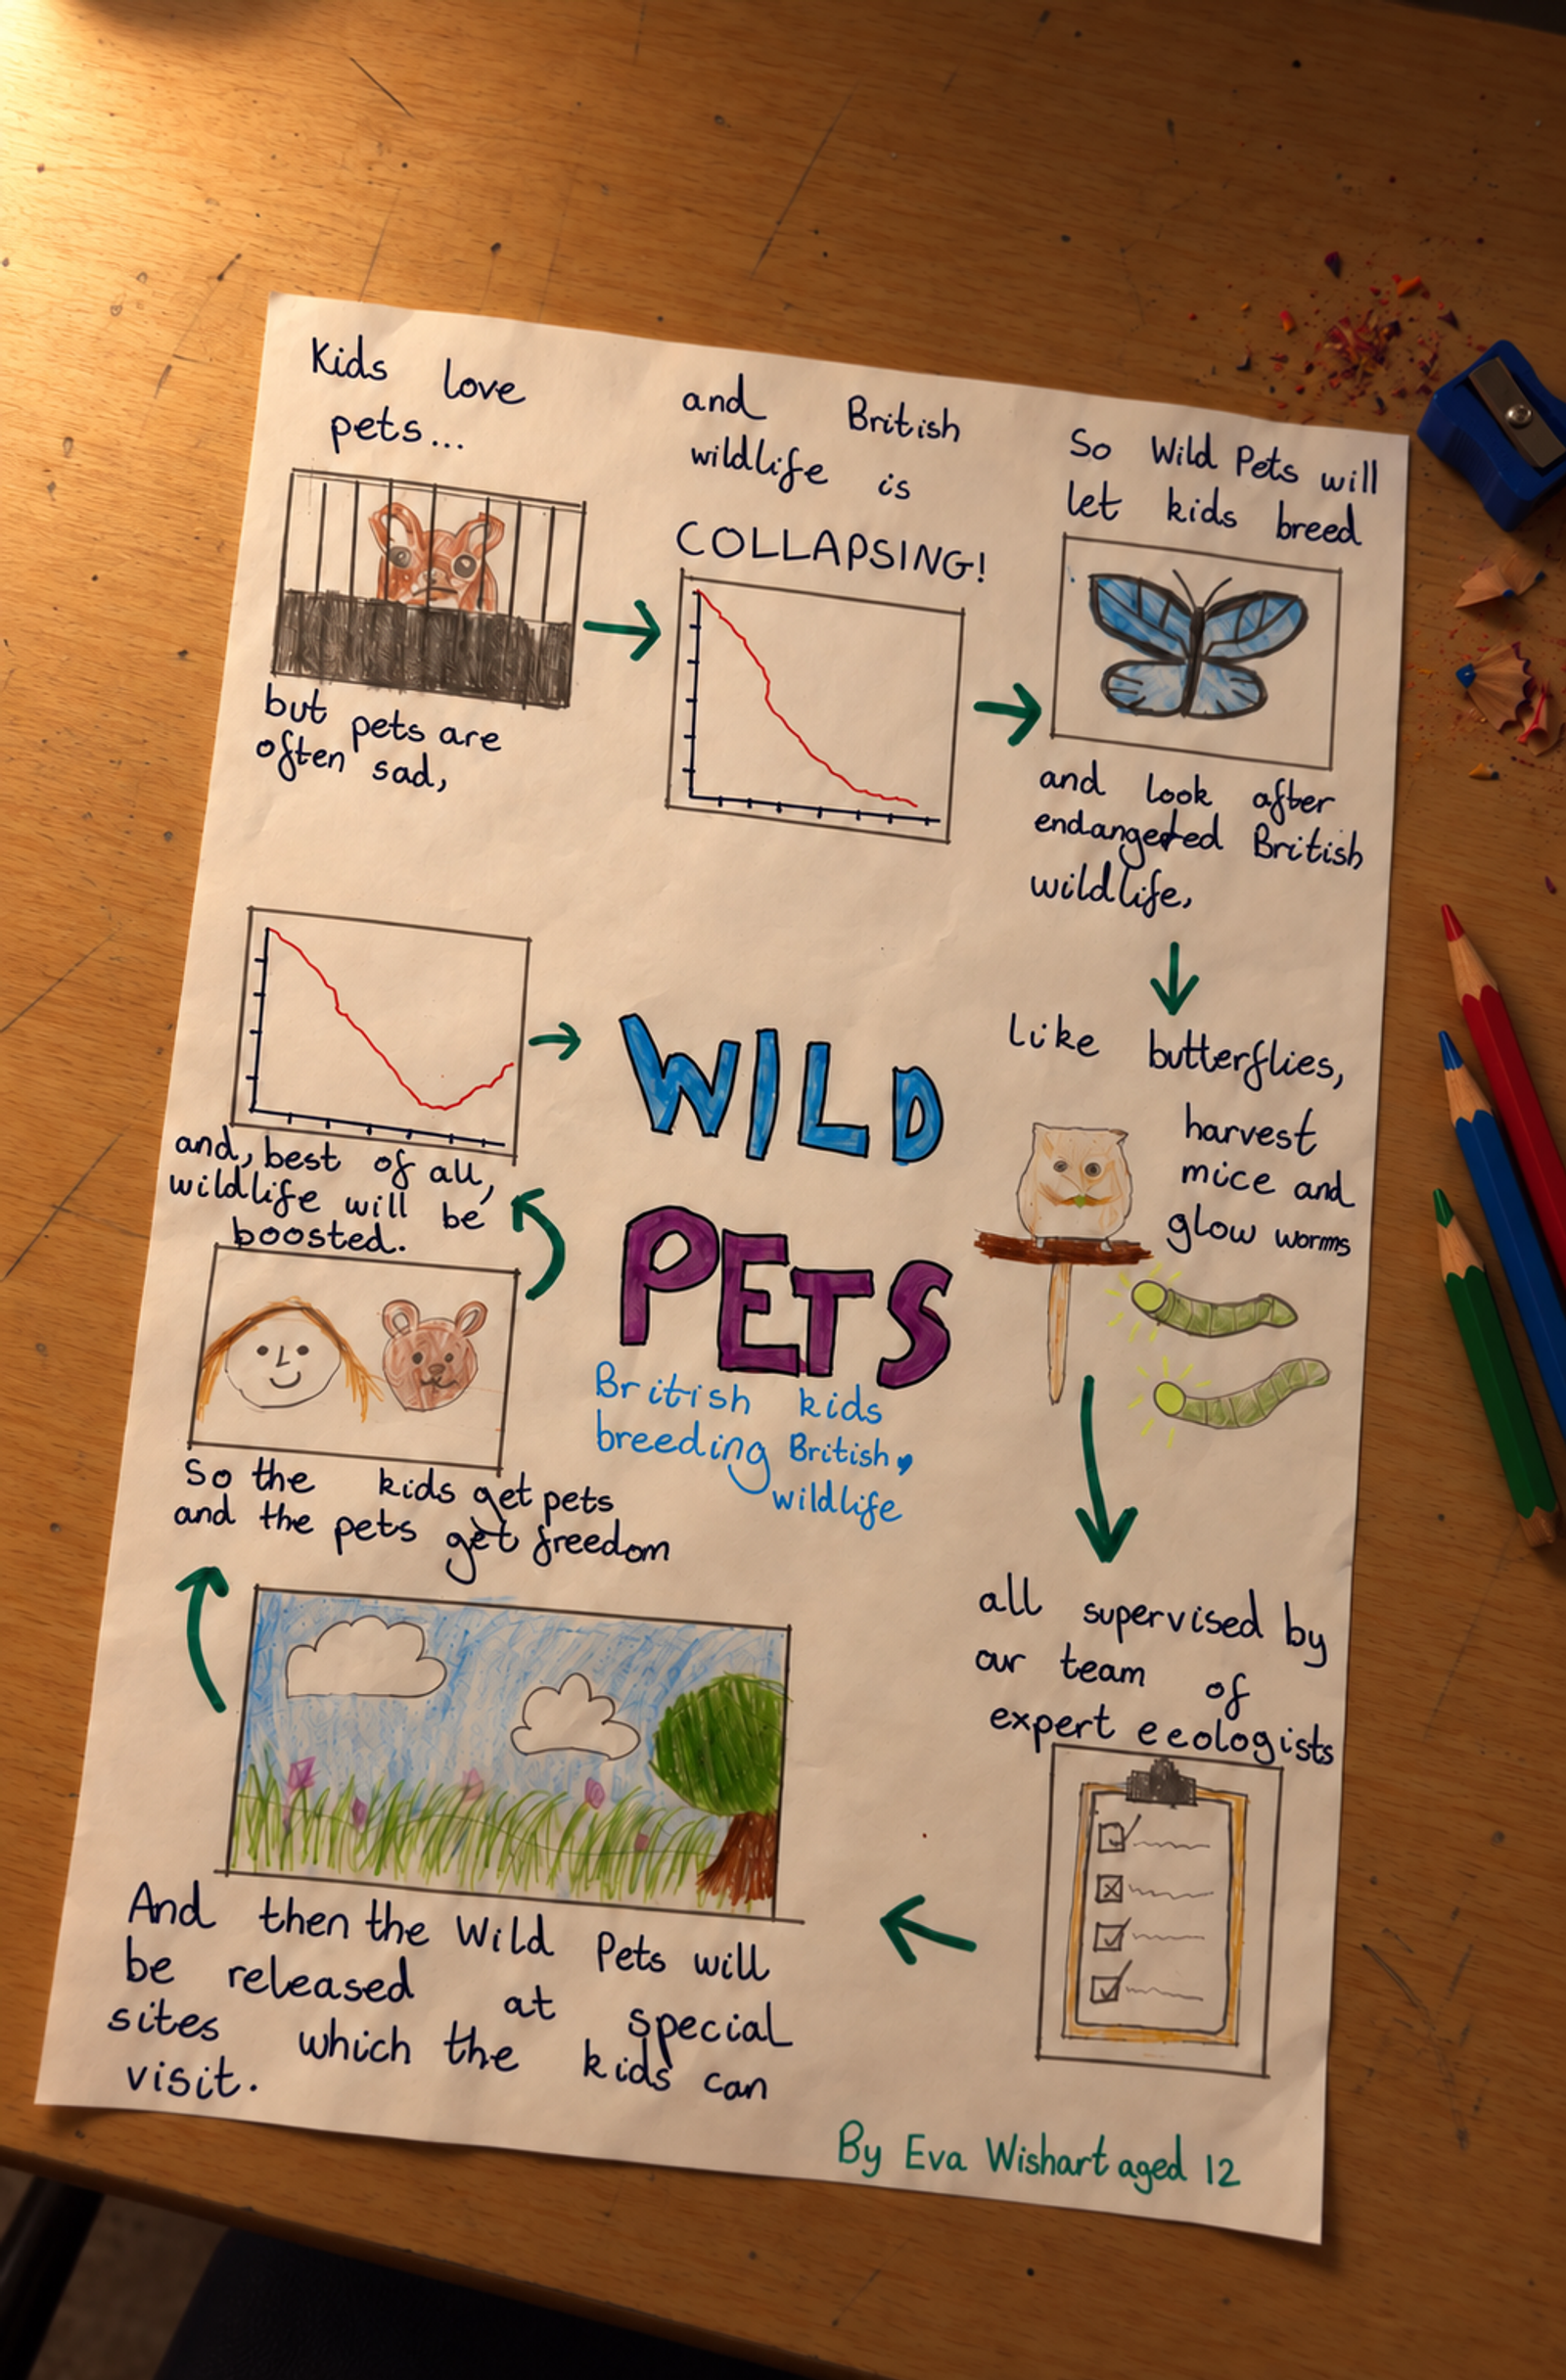 Kids love
pets...
but pets are
often sad,
and British
wildlife is
COLLAPSING!
So Wild Pets will
let kids breed
and look after
endangered British
wildlife,
like butterflies,
harvest
mice and
glow worms
all supervised by
our team of
expert ecologists
And then the Wild Pets will
be released at special
sites which the kids can
visit.
So the kids get pets
and the pets get freedom
and, best of all,
wildlife will be
boosted.
WILD
PETS
British kids
breeding British
wildlife
By Eva Wishart aged 12